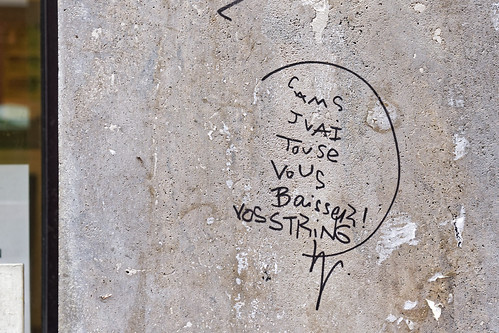 CAMS
JVAI
TOUSE
VOUS
BaisseR!
VOSSTRING